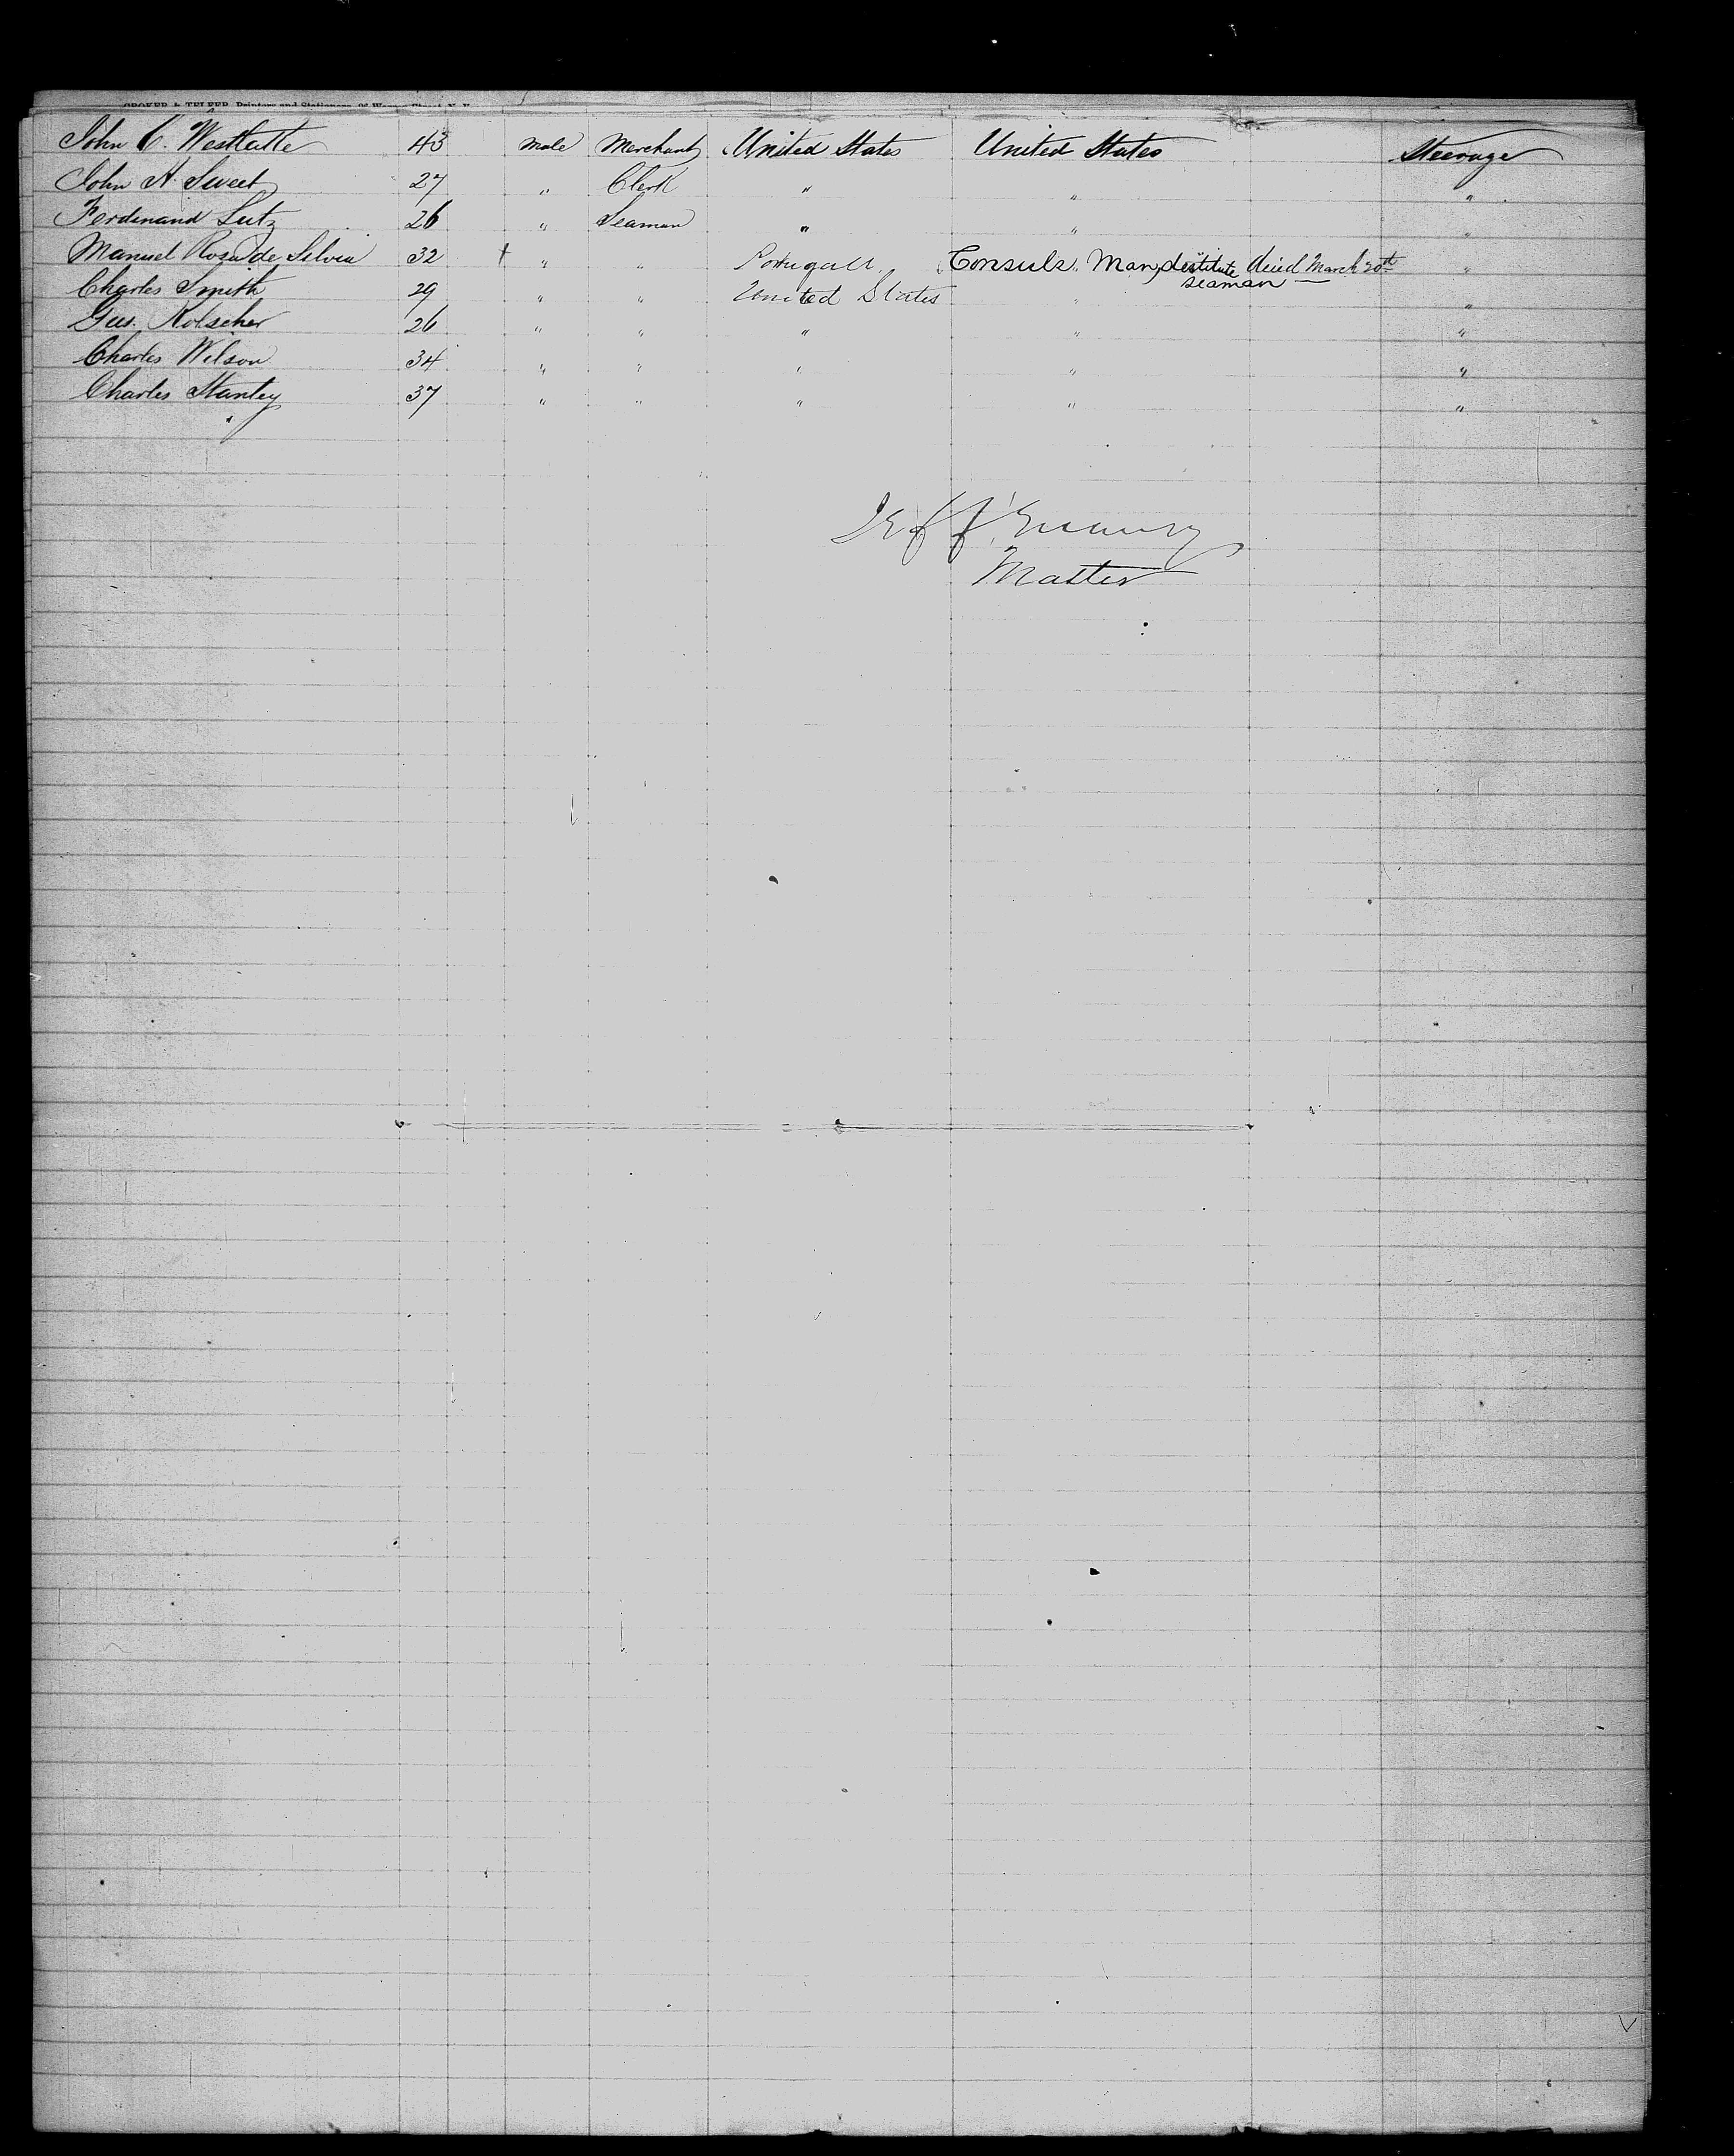 John C. Westlatte 43 Male Merchant United States United States Steerage
John H. Sweet 27 " Clerk " " "
Ferdinand Lutz 26 " Seaman " " "
Manuel Rosa de Silvia 32 † " " Portugall Consuls Man, destitute died March 20th "
seaman
Charles Smith 29 " " United States " "
Gus. 26 " " " " "
Charles Wilson 34 " " " " "
Charles Stanley 37 " " " " "
Master